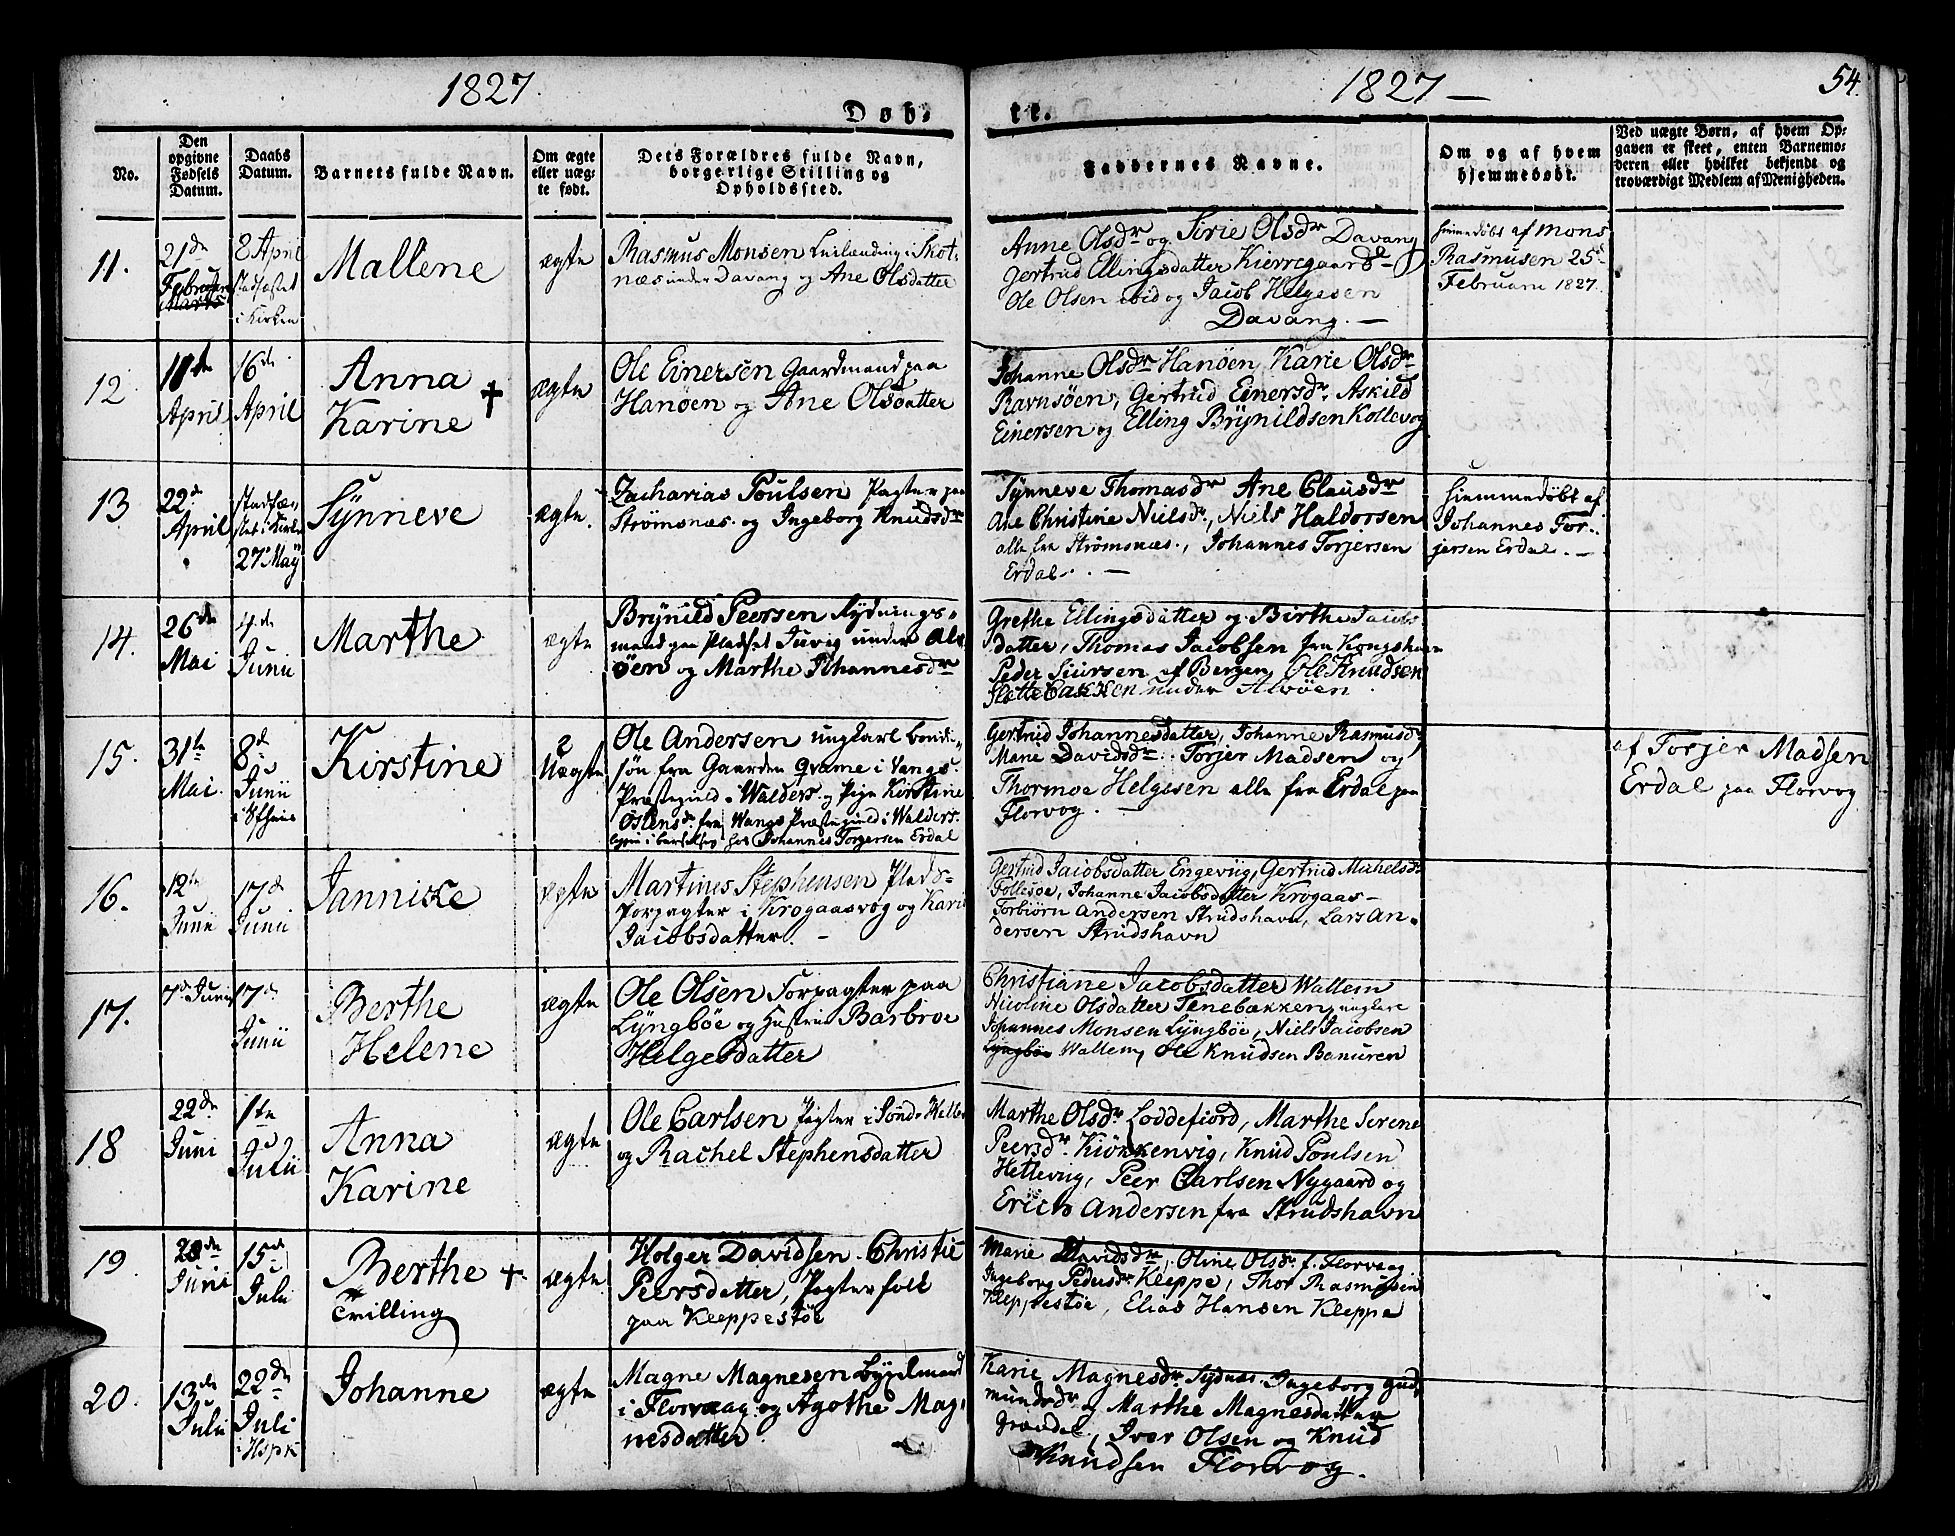 1827.
1827 —
54.
Døb-
te.
No.
Den opgivne Fødsels Datum.
Daabs Datum.
Barnets fulde Navn.
Om ægte eller uægte født.
Dets Forældres fulde Navn, borgerlige Stilling og Opholdssted.
Faddernes Navne.
Om og af hvem hjemmedøbt.
Ved uægte Børn, af hvem Opgaven er skeet, enten Barnemoderen eller hvilket bekjendt og troværdigt Medlem af Menigheden.
11.
21de
Februar
8 April
stadfæstet
i Kirken
Mallene
ægte
Rasmus Monsen Leilænding i Skot-
næs under Davang og Ane Olsdatter
Anne Olsdr og Sirie Olsdr Davang
Gertrud Ellingsdatter Kierregaard
Ole Olsen ibid og Jacob Helgesen
Davang. —
hiemmedøbt af Mons
Rasmusen 25d
Februarii 1827.
12.
11te
April
16de
April
Anna
Karine +
ægte
Ole Einersen Gaardmand paa
Hanøen og Ane Olsdatter
Johanne Olsdr Hanøen, Karie Olsdr
Ravnsøen, Gertrud Einersdr. Askild
Einersen og Elling Brÿnildsen Kollevog
13
22d
April
stadfæ-
stet i Kirken
27 Maÿ
Sÿnneve
ægte.
Zacharias Poulsen Pagter paa
Strømsnæs. og Ingeborg Knudsdr
Synneve Thomasdr Ane Clausdr
Ane Christine Nielsdr, Niels Haldorsen
alle fra Strømsnæs., Johannes Torjersen
Erdal. —
hiemmedøbt af
Johannes Tor-
jersen Erdal. —
14.
26de
Mai
4de
Junii
Marthe
ægte
Brÿnild Peersen Rydnings-
mand paa Pladset Juvig under Alv
øen og Marthe Johannesdr
Grethe Ellingsdatter og Birthe Jacobs
datter, Thomas Jacobsen fra Kongshavn
Peder Siursen af Bergen, Ole Knudsen
Flettebakken under Alvøen.
15.
31te
Mai.
8d
Junii
Kirstine
Uægte
Ole Andersen ungkarl bonde-
søn fra Gaarden Qvame i Vangs
Præstegield i Walders og Pige Kirstine
Ostensdr. fra Wangs Præstegield i Walders.
Johannes Torgersen Erdal
Gertrud Johannesdatter, Johanne Rasmusdr
Marie Davidsdr. Torjer Madsen og
Thormoe Helgesen alle fra Erdal paa
Florvog. —
af Torjer Madsen
Erdal paa Florvog
16.
12te
Junii
17d
Junii
Jannicke
ægte
Martines Stephensen Plads-
forpagter i Krogaasvog og Kari
Jacobsdatter. —
Gertrud Jacobsdatter Engeviig, Gertrud Michelsdr
Follesøe, Johanne Jacobsdatter Krogaas —
Torbiørn Andersen Strudshavn, Lars An-
dersen Strudshavn
17.
7d Junii
17d
Junii
Berthe
Helene
ægte
Ole Olsen Forpagter paa
Lÿngbøe og Hustrue Barbroe
Helgesdatter
Christiane Jacobsdatter Wallem
Nicoline Olsdatter Tenebækken, ungkarl
Johannes Monsen Lÿngbøe, Niels Jacobsen
Lyngbøe Wallem, Ole Knudsen Banuren
18
22de
Juni
1te
Julii
Anna
Karine
ægte
Ole Carlsen Pagter i
og Rachel Stephensdatter
Marthe Olsdr. Loddefiord, Marthe Serene
Peersdr. Kiøkkenvig, Knud Poulsen
Hettevig, Peer Carlsen Nygaard og
Erich Andersen fra Strudshavn
19
Juni
15d
Juli
Berthe +
Tvilling
ægte
Holger Davidsen. Christie
Peersdatter, Pagterfolk
paa Kleppestøe
Marie Davidsdr, Oline Olsdr. f. Florvaag
Ingeborg Pedersdr Kleppe, Thor Rasmusen
Kleppestøe, Elias Hansen Kleppe
20.
13de
Juli
22de
Juli
Johanne
ægte
Magne Magnesen
i Florvaag og Agothe Mag-
nesdatter
Karie Magnesdr. Sydnæs. Ingeborg Gud-
mundsdr og Marthe Magnesdatter
, Iver Olsen og Knud
Knudsen Florvog.